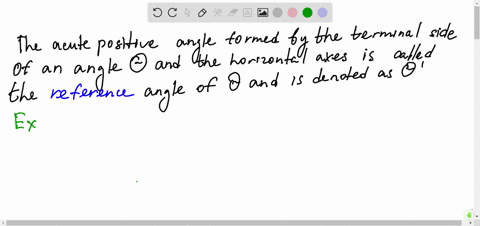 The acute positive angle formed by the terminal side
of an angle θ and the horizontal axes is called
the reference angle of θ and is denoted as θ'
Ex